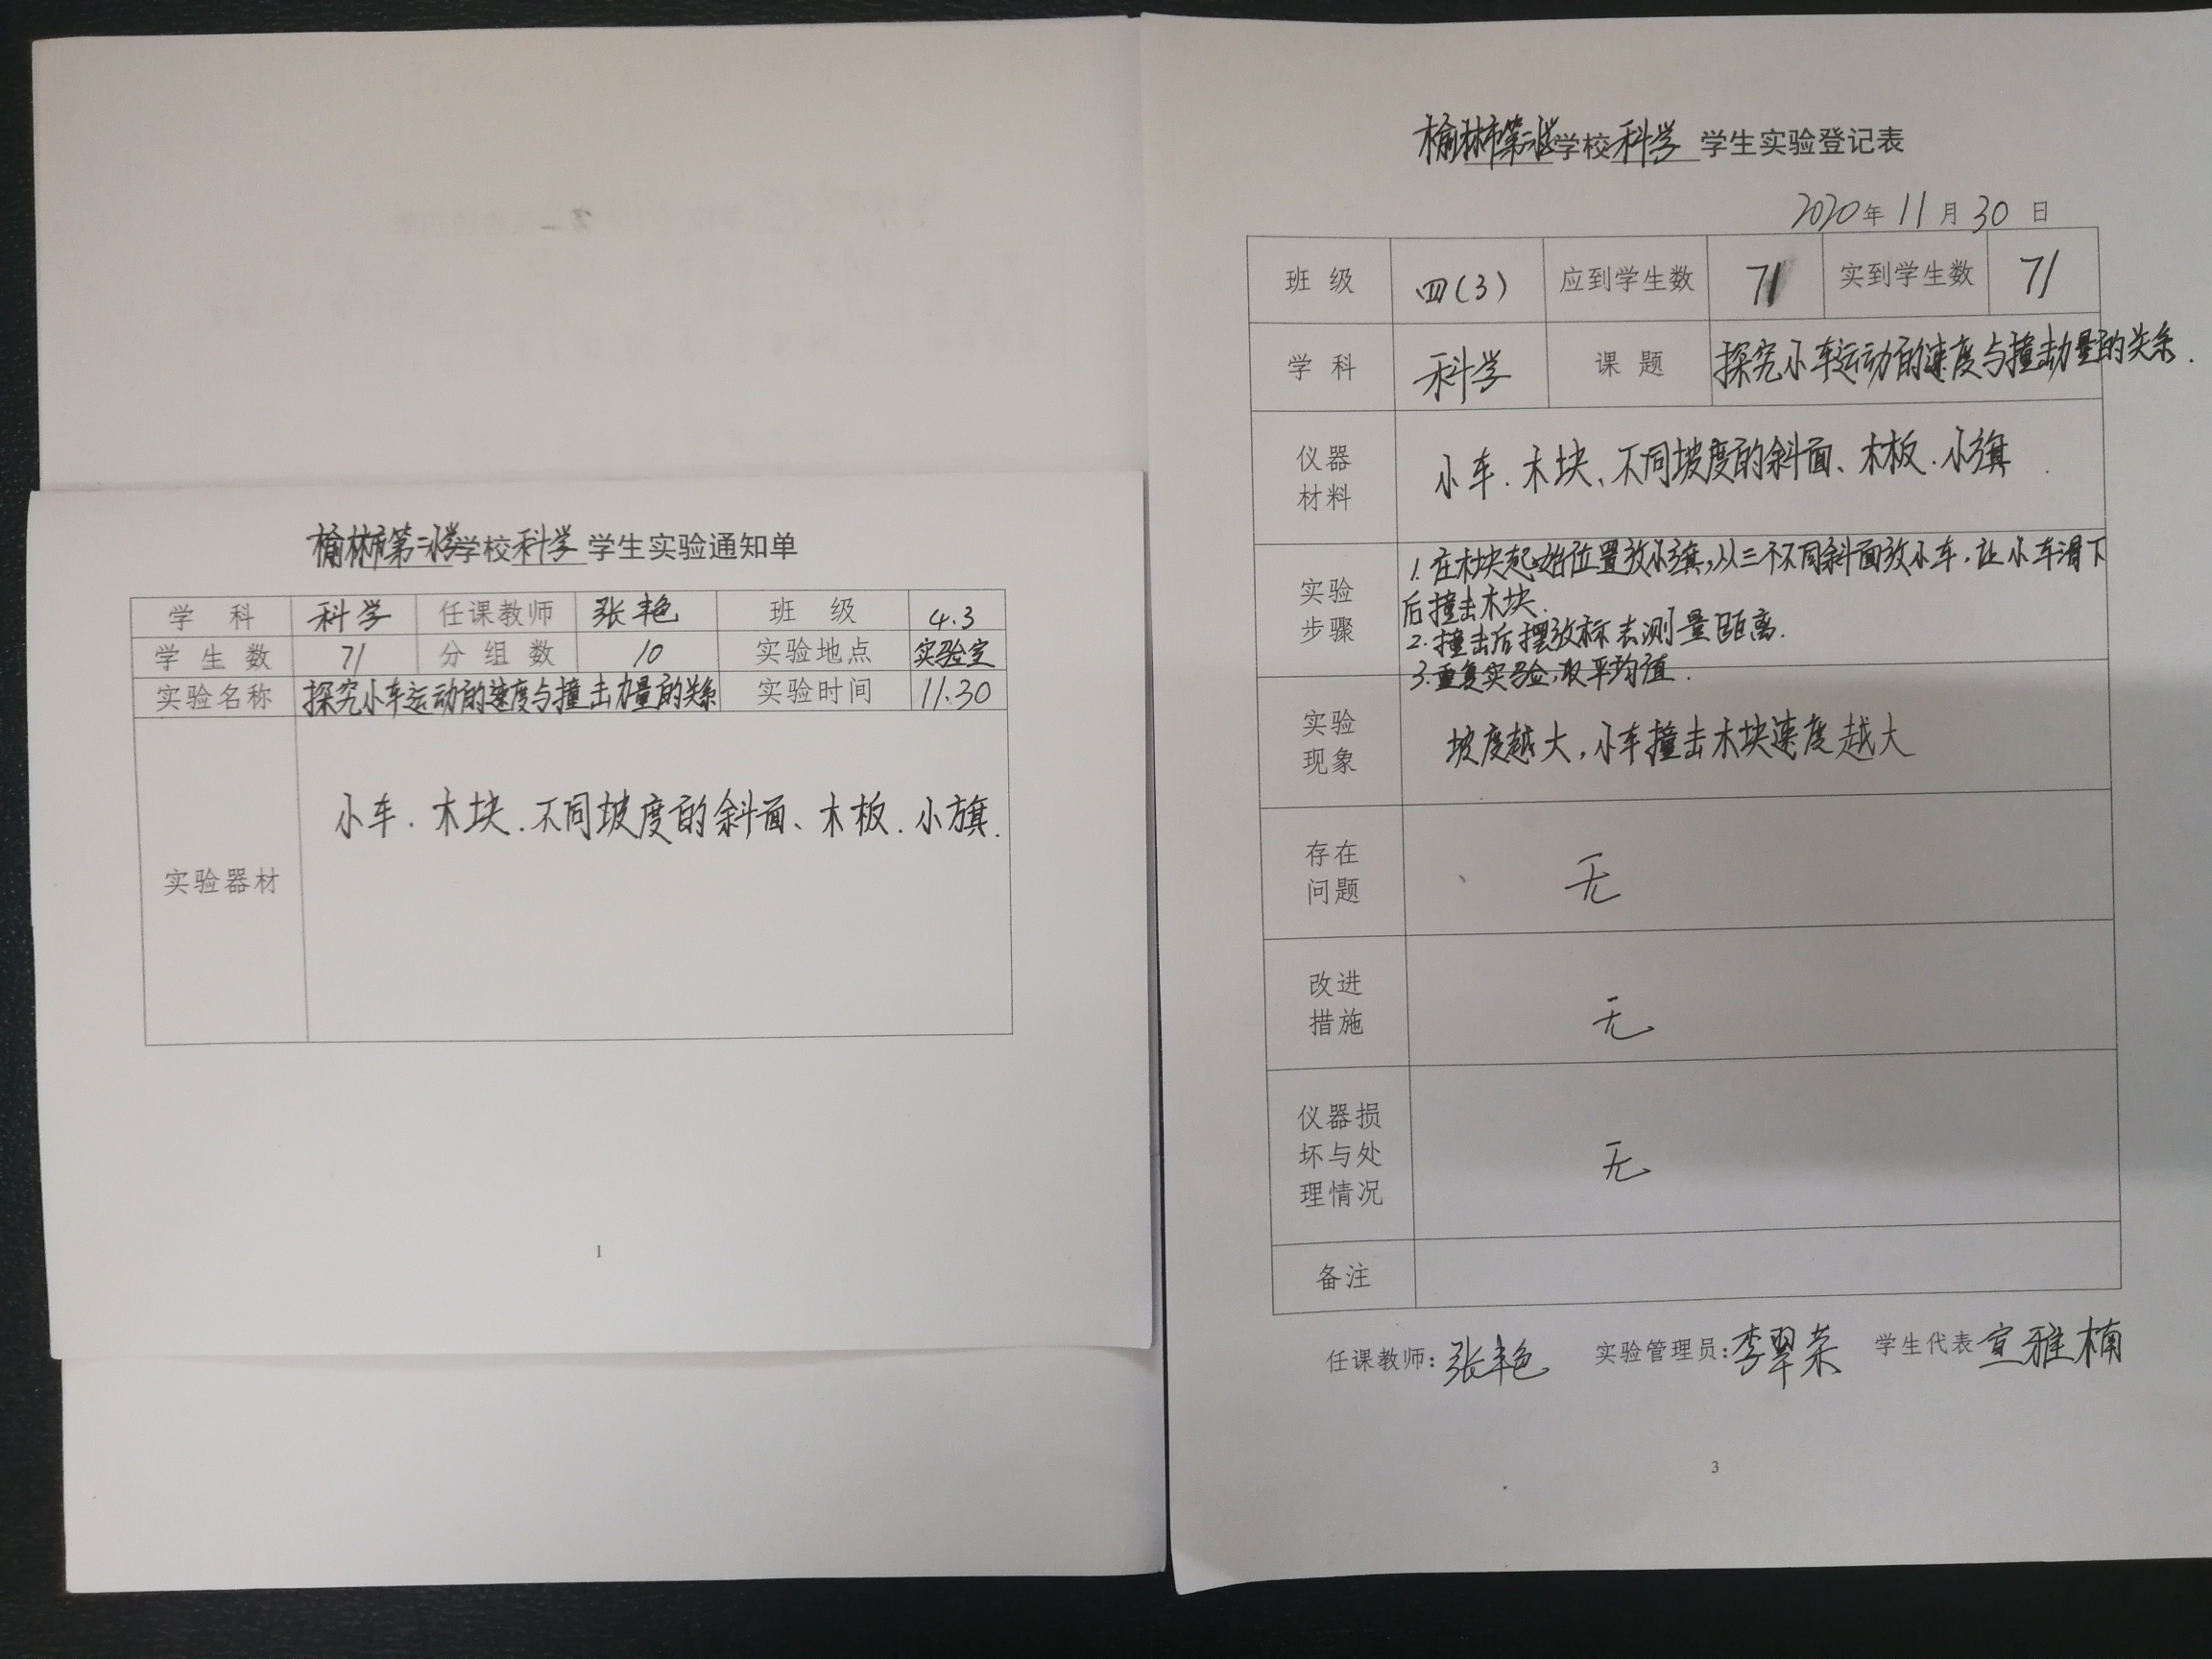 榆林市第二小学学校科学 学生实验通知单
学 科 科学 任课教师 张艳 班 级 4.3
学生数 71 分组数 10 实验地点 实验室
实验名称 探究小车运动的速度与撞击力量的关系 实验时间 11.30
实验器材 小车.木块.不同坡度的斜面、木板.小旗.
1
榆林市第二小学学校科学 学生实验登记表
2020年11月30日
班 级 四(3) 应到学生数 71 实到学生数 71
学 科 科学 课 题 探究小车运动的速度与撞击力量的关系.
仪器
材料
小车.木块、不同坡度的斜面、木板.小旗.
实验
步骤
1.在木块起始位置放小旗,从三个不同斜面放小车,让小车滑下
后撞击木块.
2.撞击后摆放标志测量距离.
3.重复实验,取平均值.
实验
现象
坡度越大,小车撞击木块速度越大
存在
问题
无
改进
措施
无
仪器损
坏与处
理情况
无
备注
任课教师:张艳 实验管理员:李翠荣 学生代表 宣雅楠
3